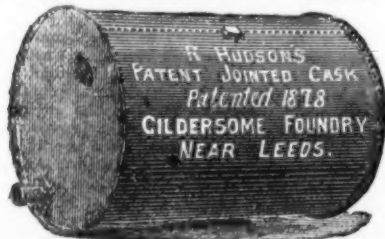 R HUDSONS
PATENT JOINTED CASK
Patented 1878
GILDERSOME FOUNDRY
NEAR LEEDS.